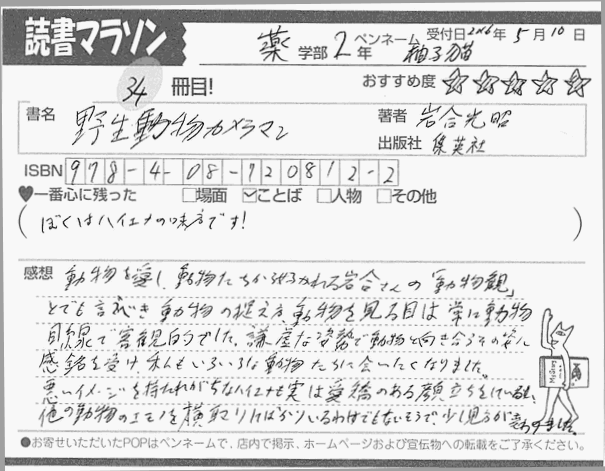 読書マラソン
薬学部2年 ペンネーム 柚子猫 受付日2016年5月10日
34冊目! おすすめ度 ☆☆☆☆☆
書名 野生動物カメラマン 著者 岩合光昭
出版社 集英社
ISBN 978-4-08-720812-2
♥一番心に残った □場面 ☑ことば □人物 □その他
(ぼくはハイエナの味方です!)
感想 動物を愛し、動物たちから好かれる岩合さんの「動物観」
とでも言うべき動物の捉え方、動物を見る目は常に動物
目線で客観的でした。謙虚な姿勢で動物と向き合うその姿に
感銘を受け私もいろいろな動物たちに会いたくなりました。
悪いイメージを持たれがちなハイエナも実は愛嬌のある顔立ちをしているし、
他の動物のエモノを横取りばかりいるわけでもないそうで、少し見方が変わりました。
●お寄せいただいたPOPはペンネームで、店内で掲示、ホームページおよび宣伝物への転載をご了承ください。